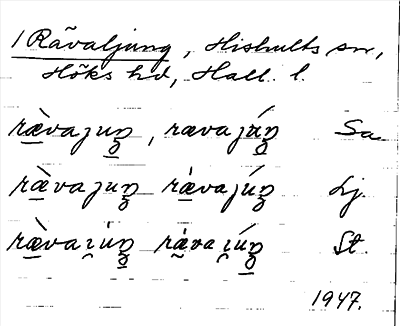 1 Råvaljung, Hishults sn,
Höks hd, Hall. l.
rævajuŋ, rævajúŋ Sa.
rævajuŋ rævajúŋ Lj.
rævai̯úŋ rævai̯úŋ St.
1947.